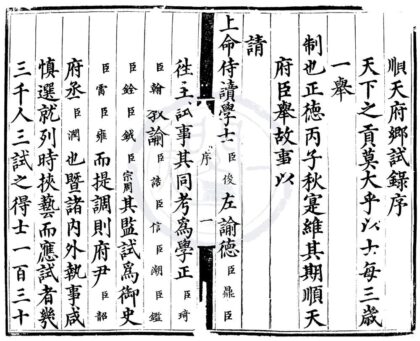 順天府鄉試錄序
天下之貢莫大乎以士每三歲
一舉
制也正德丙子秋寔維其期順天
府臣舉故事以
請
序 一
上命侍讀學士臣俊左諭德臣鼎臣
徃主試事其同考爲學正臣琦
臣翰敎諭臣誥臣信臣潮臣鑑
臣銓臣鉞臣宗周其監試爲御史
臣雷臣雍而提調則府尹臣韶
府丞臣潤也暨諸內外執事咸
慎選就列時挾藝而應試者幾
三千人三試之得士一百三十